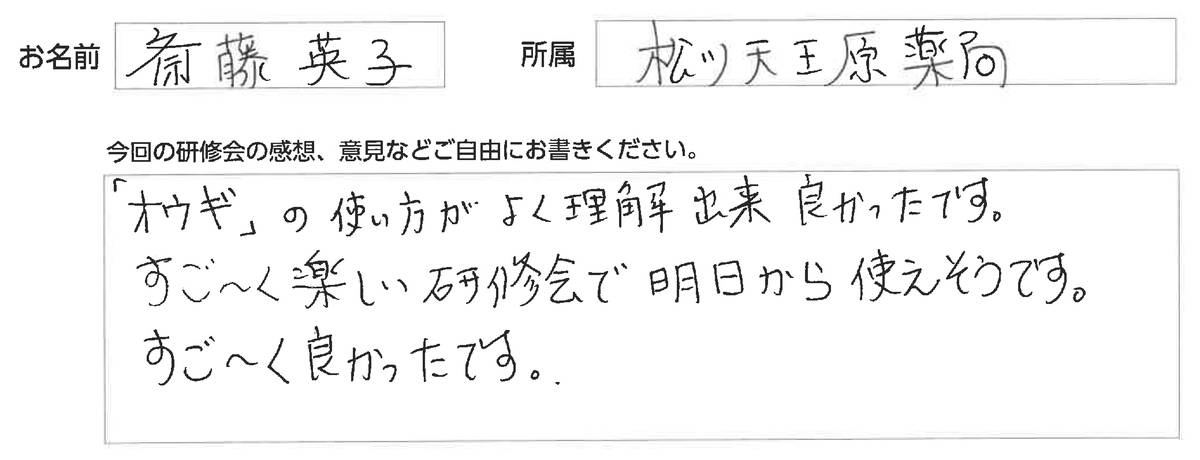 お名前 斎藤 英子 所属 松ツ天王原薬局
今回の研修会の感想、意見などご自由にお書きください。
「オウギ」の使い方がよく理解出来良かったです。
すご〜く楽しい研修会で明日から使えそうです。
すご〜く良かったです。